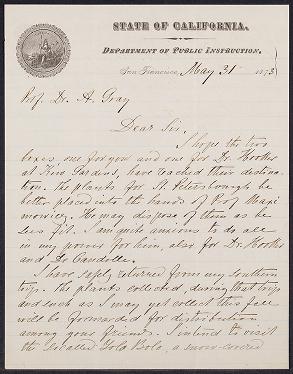 STATE OF CALIFORNIA.
DEPARTMENT OF PUBLIC INSTRUCTION,
San Francisco, May 31 1875
Prof. Dr. A. Gray
Dear Sir,
I hope the two
boxes, one for you and one for Dr. Hooker
at Kew Gardens, have reached their destina-
tion. The plants for St. Petersbourgh be
better placed into the hands of Prof Maxi
movicz. He may dispose of them as he
sees fit. I am quite anxious to do all
in my power for him, also for Dr. Hooker
and De Candolle.
I have safely returned from my southern
trip. The plants collected, during that trip
and such as I may yet collect this fall
will be forwarded for distribution
among your friends. I intend to visit
the so called Yolo Bolo, a snow-covered